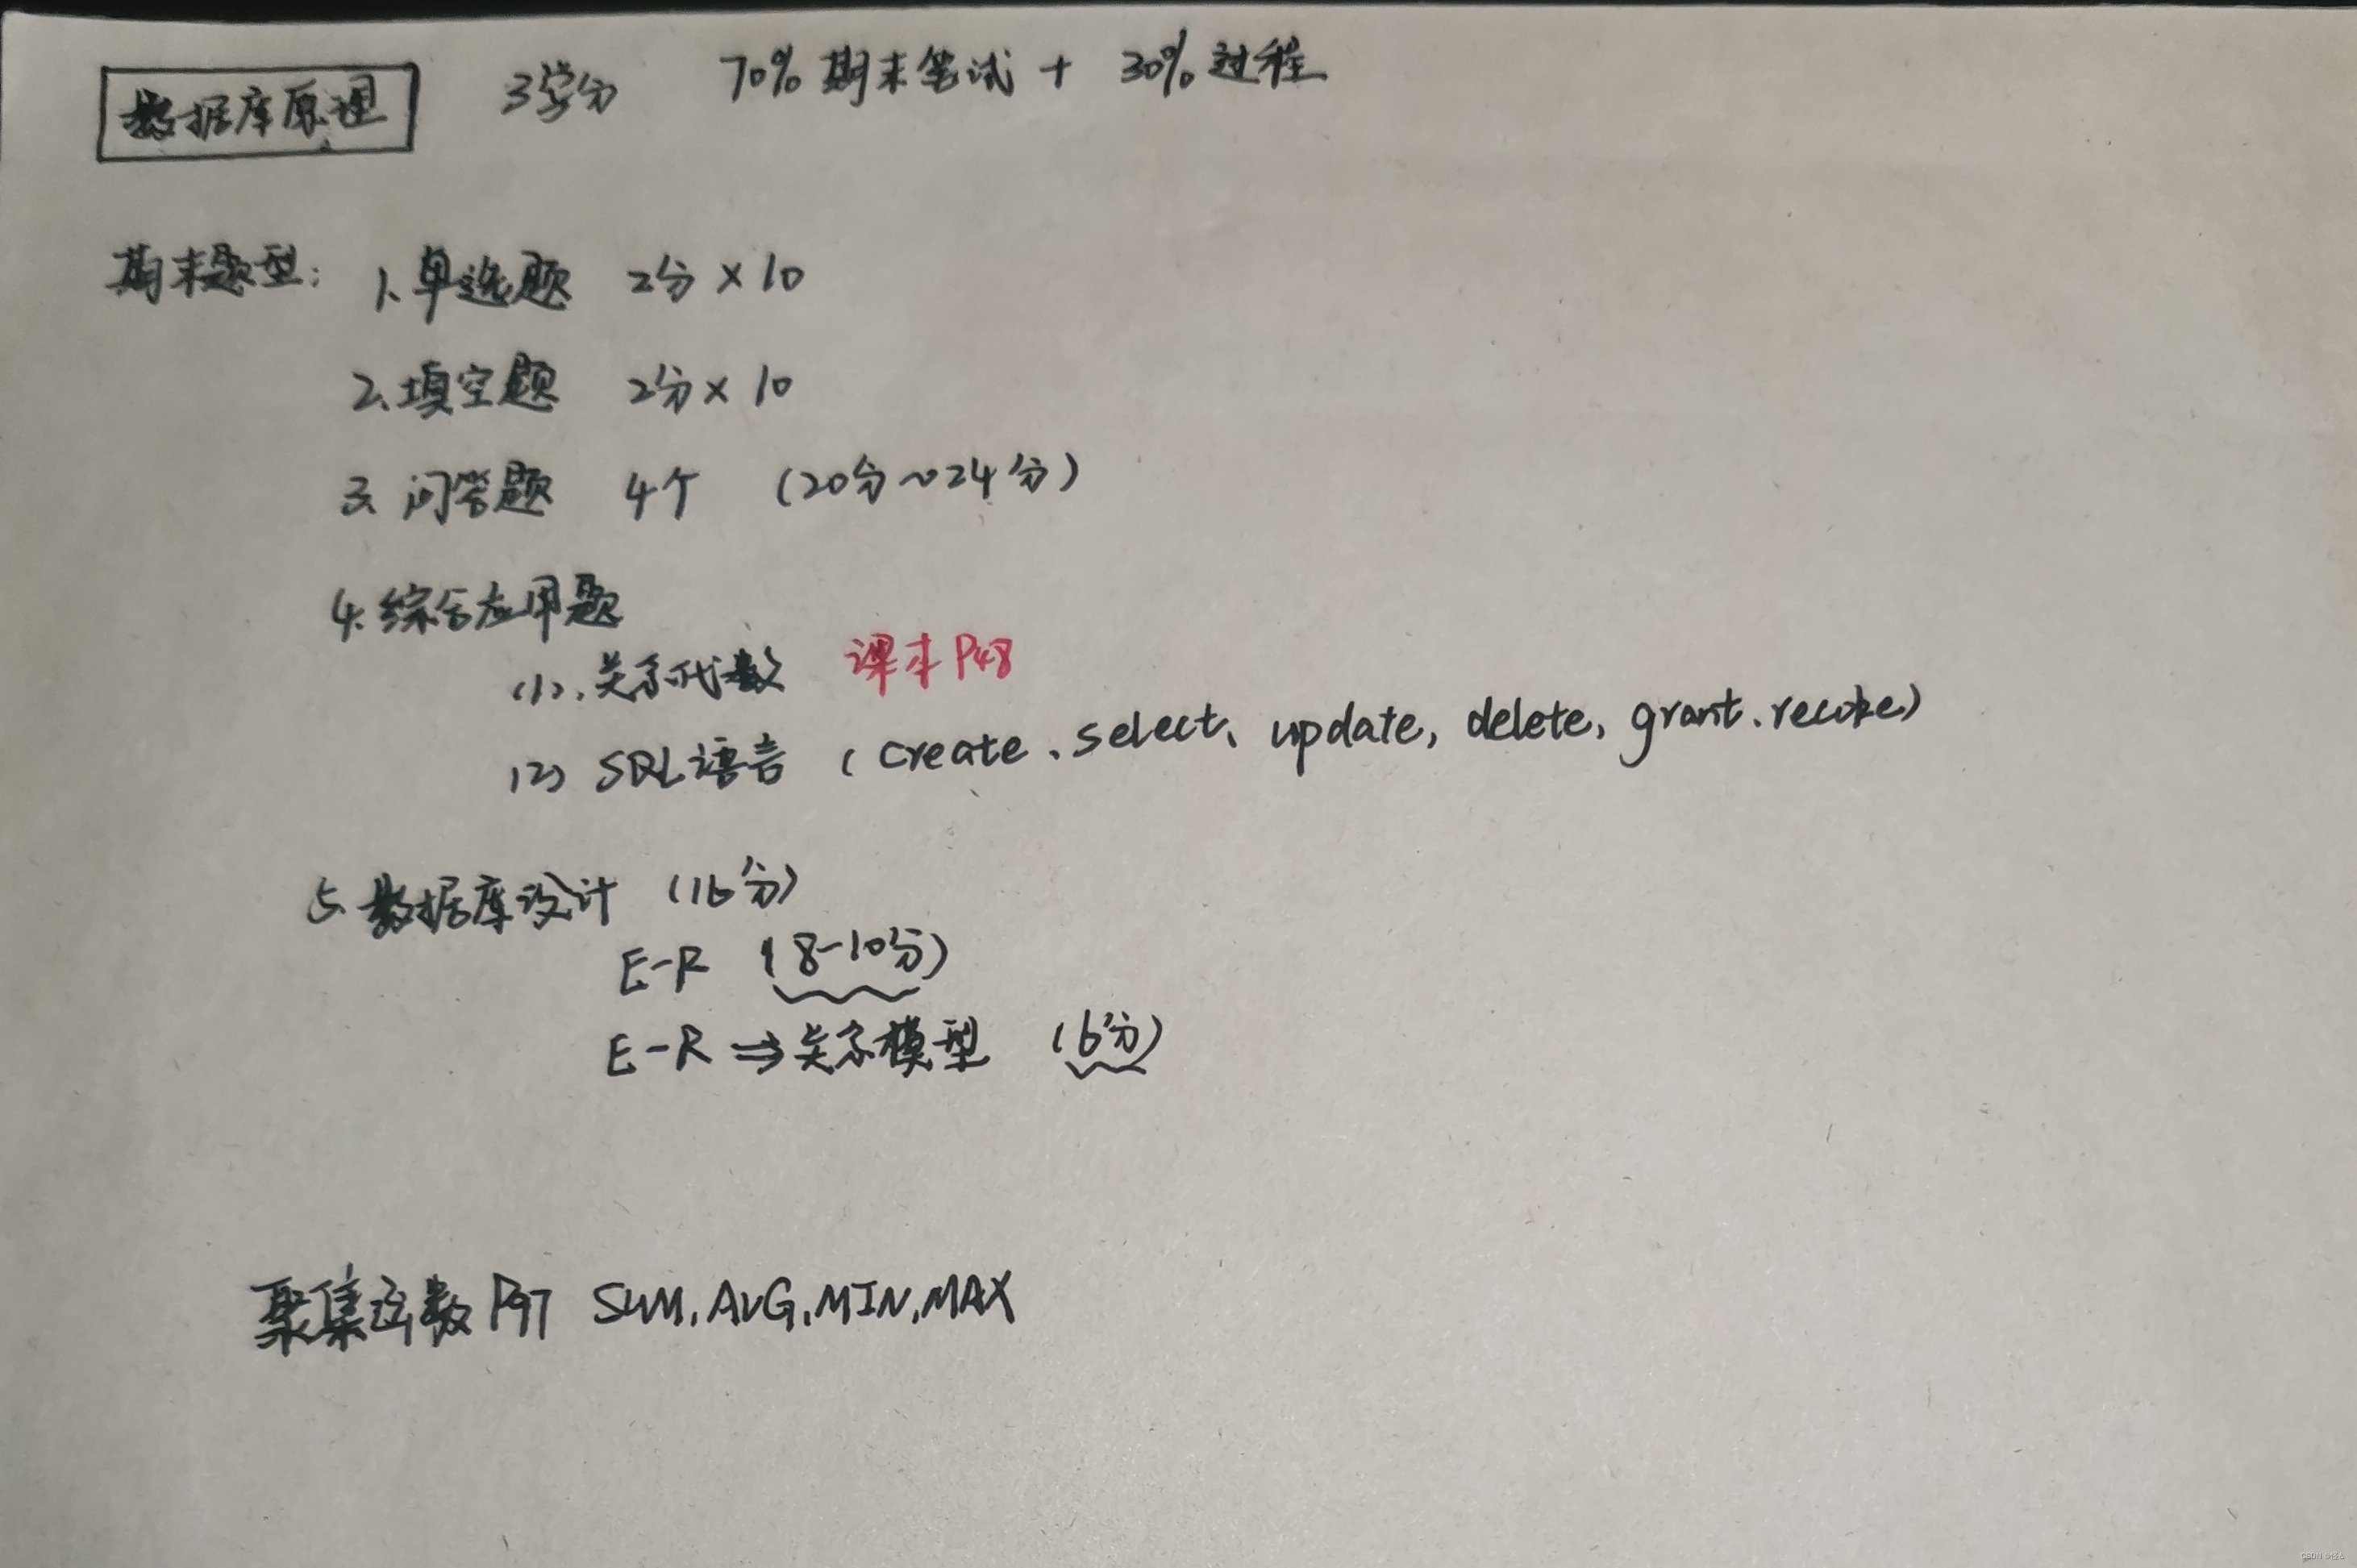 数据库原理 3学分 70%期末笔试 + 30%过程
期末题型: 1、单选题 2分×10
2、填空题 2分×10
3、问答题 4个 (20分~24分)
4、综合应用题
(1)、关系代数 课本P48
(2) SQL语言 (create、select、update, delete, grant、revoke)
5、数据库设计 (16分)
E-R (8-10分)
E-R ⇒关系模型 (6分)
聚集函数 P97 SUM,AVG,MIN,MAX